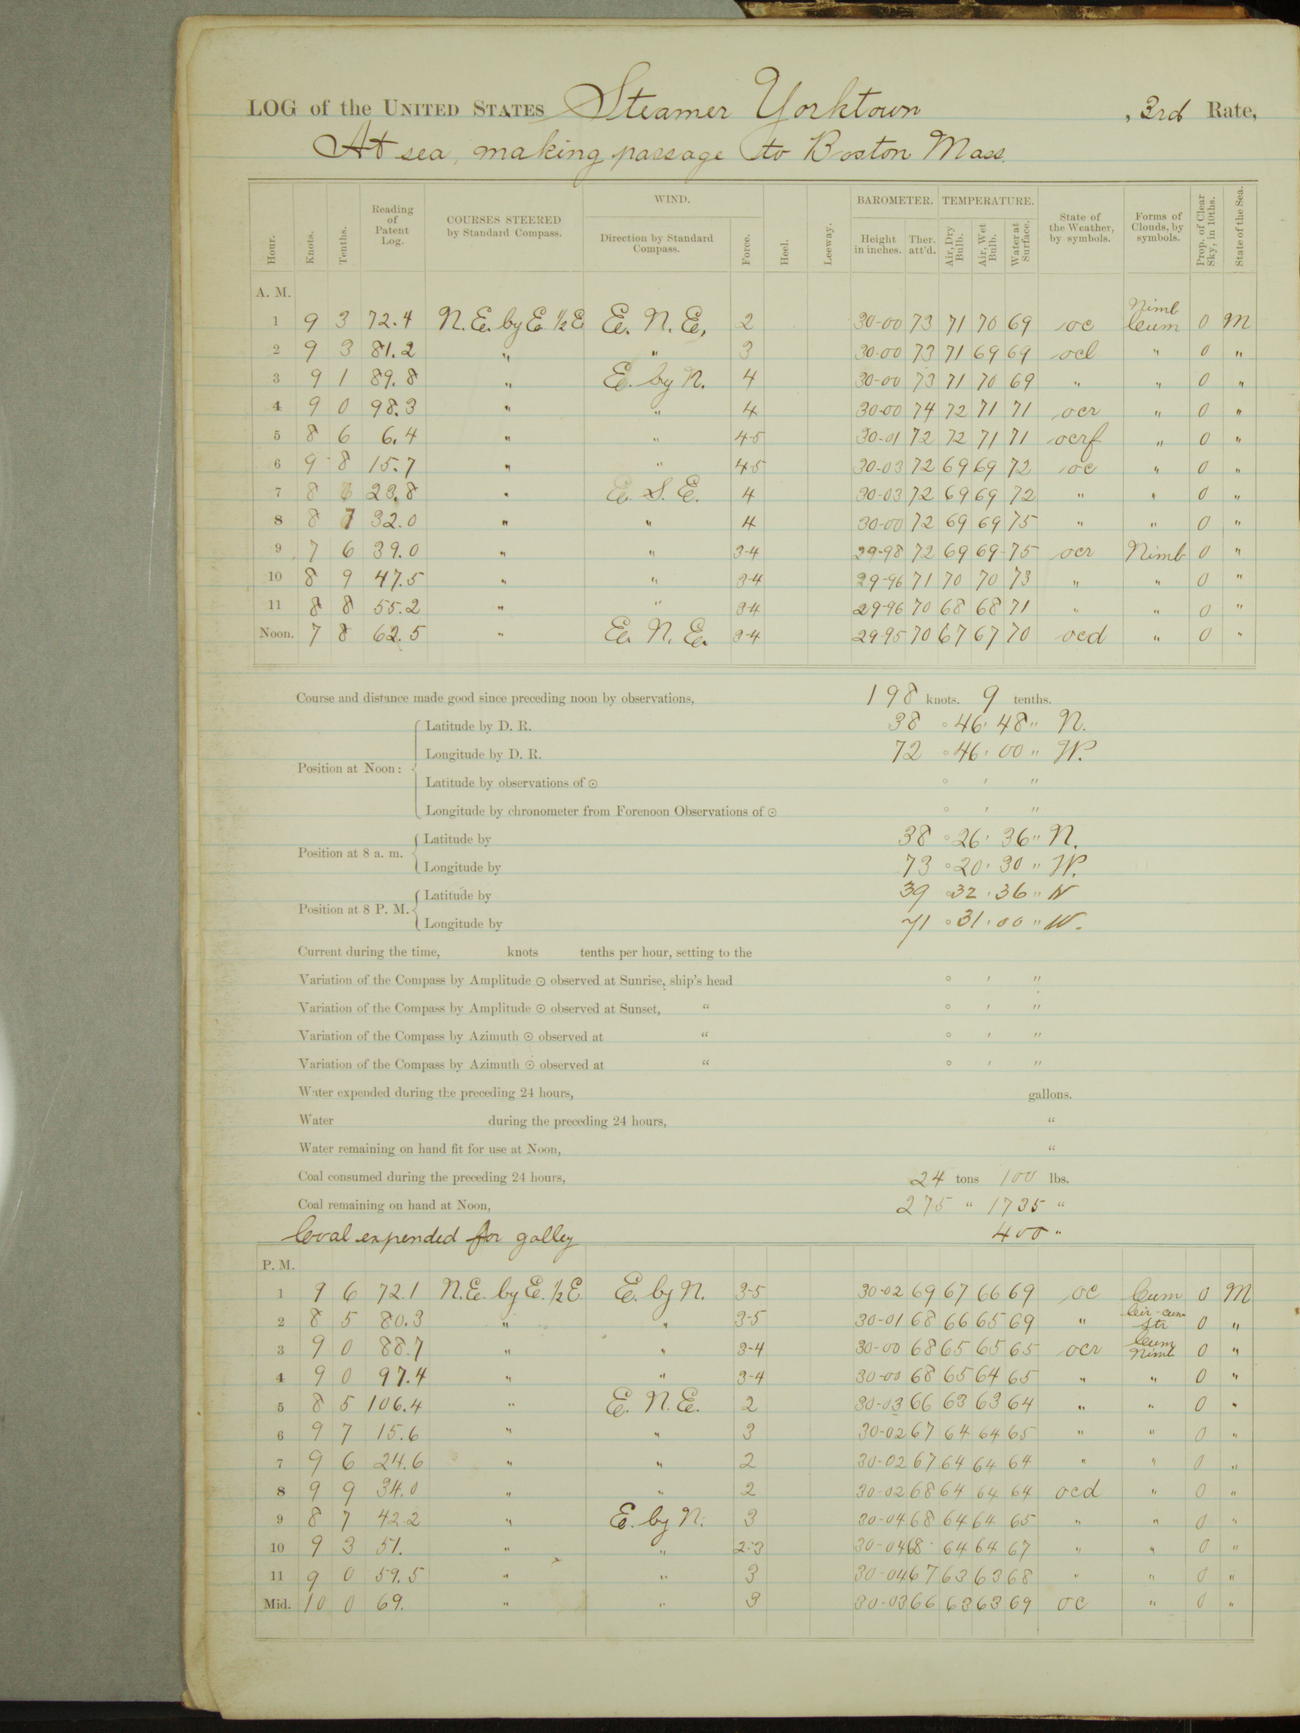 LOG of the UNITED STATES Steamer Yorktown , 3rd Rate,
At sea, making passage to Boston Mass.
Hour. Knots. Tenths. Reading of Patent Log. COURSES STEERED by Standard Compass. WIND. Direction by Standard Compass. Force. Heel. Leeway. BAROMETER. Height in inches. Ther. att'd. TEMPERATURE. Air, Dry Bulb. Air, Wet Bulb. Water at Surface. State of the Weather, by symbols. Forms of Clouds, by symbols. Prop. of Clear Sky, in 10ths. State of the Sea.
A. M.
1 9 3 72.4 N.E. by E. ½ E E. N. E, 2 30-00 73 71 70 69 oc Nimb Cum 0 M
2 9 3 81.2 " " 3 30-00 73 71 69 69 ocl " 0 "
3 9 1 89.8 " E. by N. 4 30-00 73 71 70 69 " " 0 "
4 9 0 98.3 " " 4 30-00 74 72 71 71 ocr " 0 "
5 8 6 6.4 " " 4-5 30-01 72 72 71 71 ocrf " 0 "
6 9 8 15.7 " " 4-5 30-03 72 69 69 72 oc " 0 "
7 8 23.8 " E. S. E. 4 30-03 72 69 69 72 " " 0 "
8 8 7 32.0 " " 4 30-00 72 69 69 75 " " 0 "
9 7 6 39.0 " " 3-4 29-98 72 69 69 75 ocr Nimb 0 "
10 8 9 47.5 " " 3-4 29-96 71 70 70 73 " " 0 "
11 8 8 55.2 " " 3-4 29-96 70 68 68 71 " " 0 "
Noon. 7 8 62.5 " E. N. E. 3-4 29-95 70 67 67 70 ocd " 0 "
Course and distance made good since preceding noon by observations, 198 knots. 9 tenths.
Position at Noon: Latitude by D. R. 38 ° 46 ' 48 " N.
Longitude by D. R. 72 ° 46 ' 00 " W.
Latitude by observations of ☉ ° ' "
Longitude by chronometer from Forenoon Observations of ☉ ° ' "
Position at 8 a. m. Latitude by 38 ° 26 ' 36 " N.
Longitude by 73 ° 20 ' 30 " W.
Position at 8 P. M. Latitude by 39 ° 32 ' 36 " N
Longitude by 71 ° 31 ' 00 " W.
Current during the time, knots tenths per hour, setting to the
Variation of the Compass by Amplitude ☉ observed at Sunrise, ship's head ° ' "
Variation of the Compass by Amplitude ☉ observed at Sunset, " ° ' "
Variation of the Compass by Azimuth ☉ observed at " ° ' "
Variation of the Compass by Azimuth ☉ observed at " ° ' "
Water expended during the preceding 24 hours, gallons.
Water during the preceding 24 hours, "
Water remaining on hand fit for use at Noon, "
Coal consumed during the preceding 24 hours, 24 tons 100 lbs.
Coal remaining on hand at Noon, 275 " 1735 "
Coal expended for galley 400 "
P. M.
1 9 6 72.1 N.E. by E. ½ E E. by N. 3-5 30-02 69 67 66 69 oc Cum 0 M
2 8 5 80.3 " " 3-5 30-01 68 66 65 69 " Cir-cum Str 0 "
3 9 0 88.7 " " 3-4 30-00 68 65 65 65 ocr Cum Nimb 0 "
4 9 0 97.4 " " 3-4 30-00 68 65 64 65 " " 0 "
5 8 5 106.4 " E. N. E. 2 30-03 66 63 63 64 " " 0 "
6 9 7 15.6 " " 3 30-02 67 64 64 65 " " 0 "
7 9 6 24.6 " " 2 30-02 67 64 64 64 " " 0 "
8 9 9 34.0 " " 2 30-02 68 64 64 64 ocd " 0 "
9 8 7 42.2 " E. by N. 3 30-04 68 64 64 65 " " 0 "
10 9 3 51. " " 2-3 30-04 68 64 64 67 " " 0 "
11 9 0 59.5 " " 3 30-04 67 63 63 68 " " 0 "
Mid. 10 0 69. " " 3 30-03 66 63 63 69 oc " 0 "